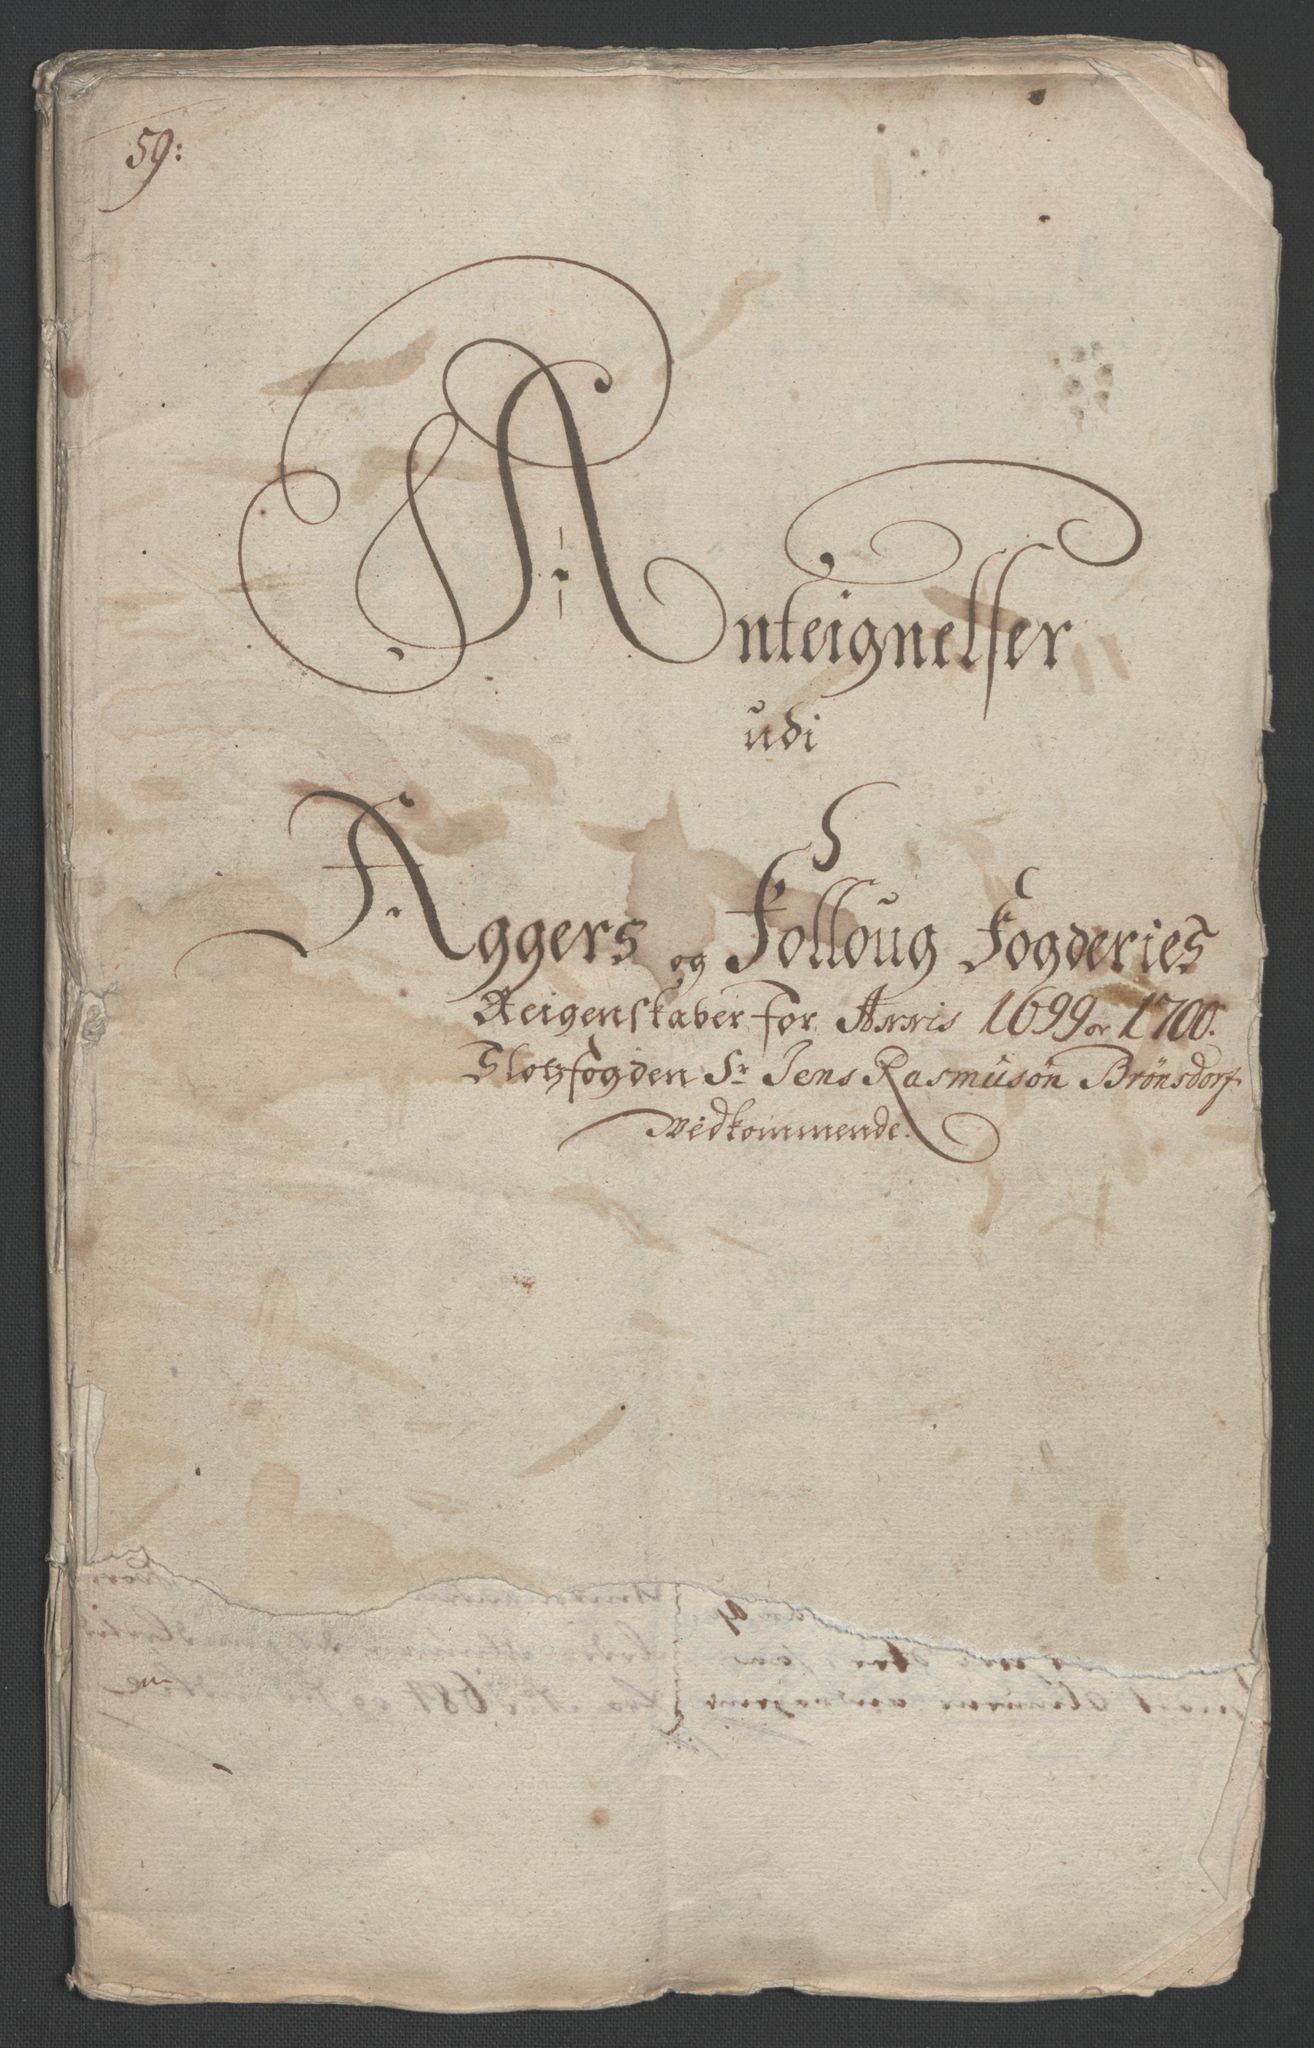 59:
Anteignelser
udi
Aggers og Folloug Fogderies
Reigenskaber for Annis 1699 or 1700.
Slotzfogden Sr Jens Rasmusøn Brønsdorf
Vedkommende.